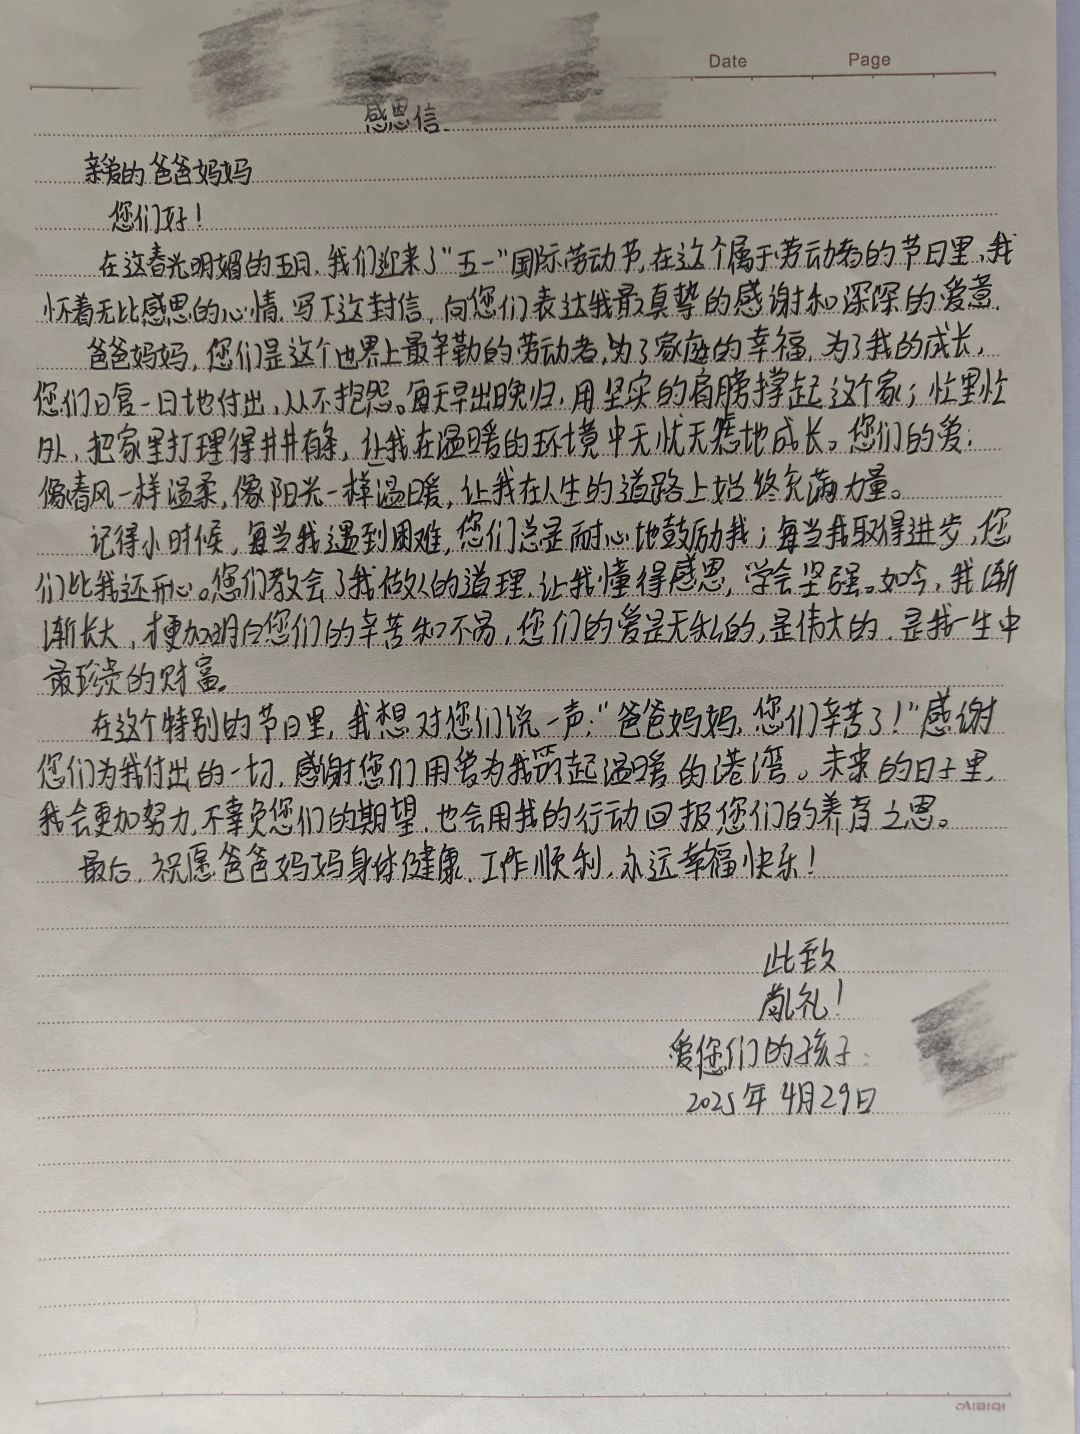 Date Page
感恩信
亲爱的爸爸妈妈
您们好！
在这春光明媚的五月，我们迎来了“五一”国际劳动节，在这个属于劳动者的节日里，我
怀着无比感恩的心情，写下这封信，向您们表达我最真挚的感谢和深深的爱意．
爸爸妈妈，您们是这个世界上最辛勤的劳动者，为了家庭的幸福，为了我的成长，
您们日复一日地付出，从不抱怨。每天早出晚归，用坚实的肩膀撑起这个家；忙里忙
外，把家里打理得井井有条，让我在温暖的环境中无忧无愁地成长。您们的爱：
像春风一样温柔，像阳光一样温暖，让我在人生的道路上始终充满力量。
记得小时候，每当我遇到困难，您们总是耐心地鼓励我；每当我取得进步，您
们比我还开心。您们教会了我做人的道理，让我懂得感恩，学会坚强。如今，我渐
渐长大，才更加明白您们的辛苦和不易，您们的爱是无私的，是伟大的．是我一生中
最珍贵的财富。
在这个特别的节日里，我想对您们说一声：“爸爸妈妈，您们辛苦了！”感谢
您们为我付出的一切，感谢您们用爱为我筑起温暖的港湾。未来的日子里，
我会更加努力，不辜负您们的期望，也会用我的行动回报您们的养育之恩。
最后，祝愿爸爸妈妈身体健康，工作顺利，永远幸福快乐！
此致
敬礼！
爱您们的孩子：
2025年4月29日